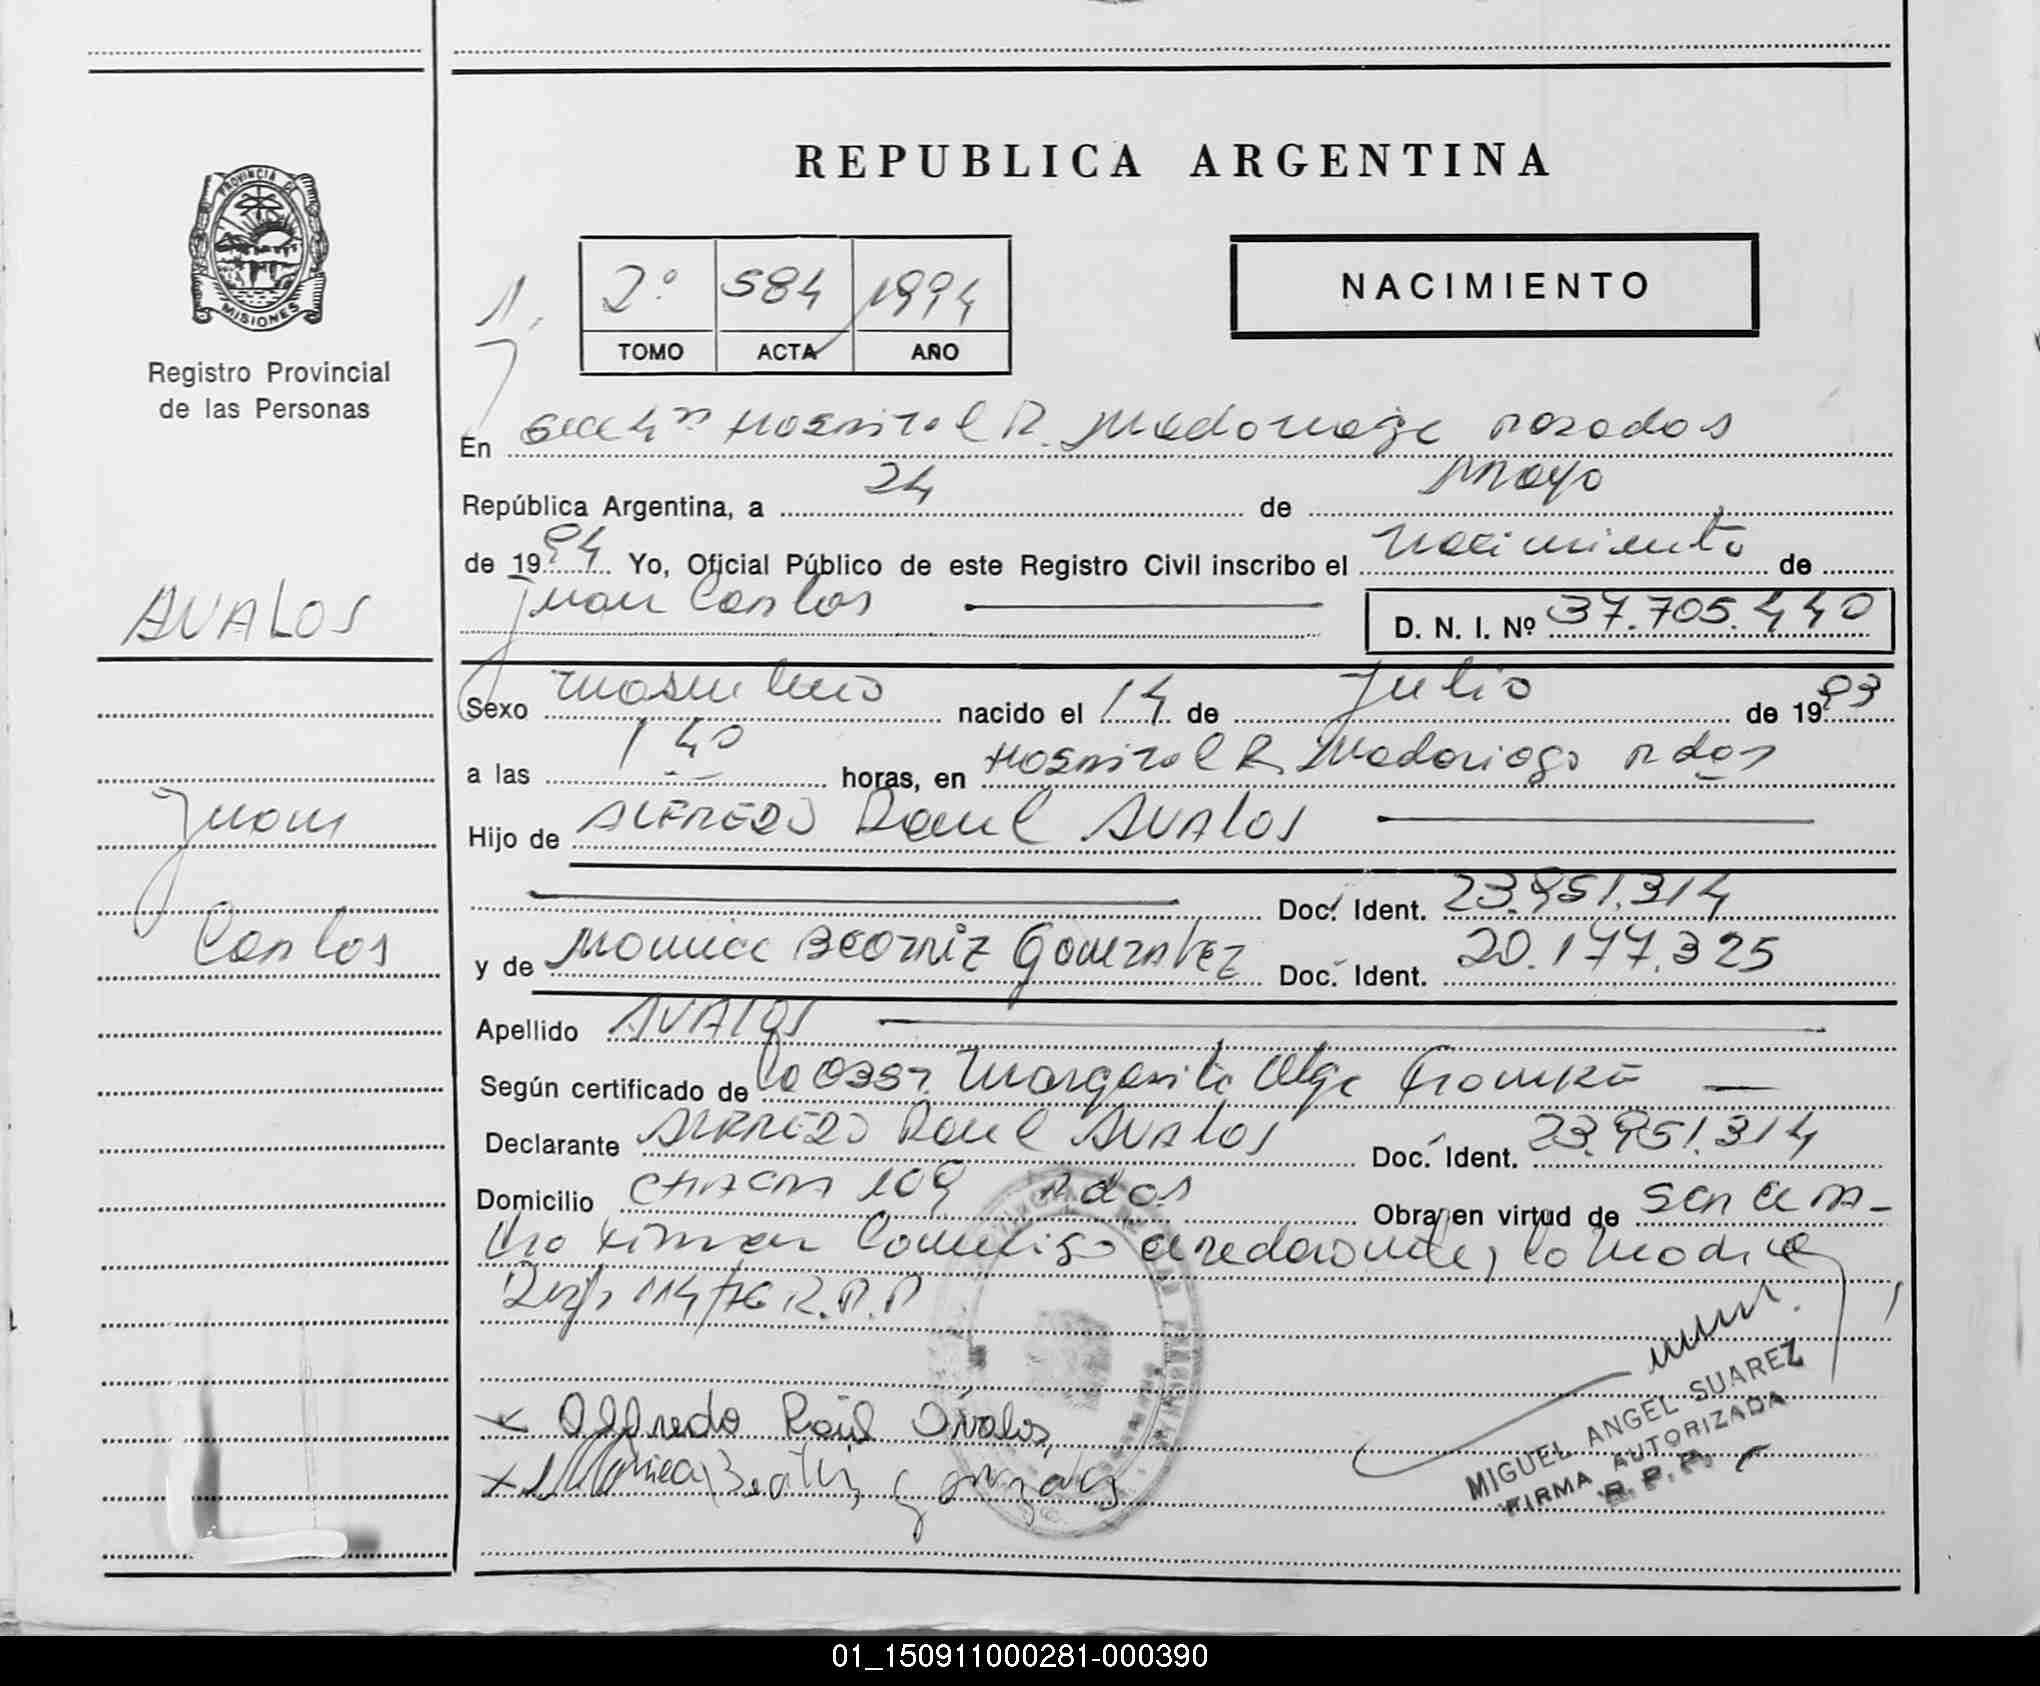 REPUBLICA ARGENTINA
PROVINCIA DE
MISIONES
Registro Provincial
de las Personas
2º 584 1994
TOMO ACTA AÑO
NACIMIENTO
En Hospital R. Madariaga posadas
República Argentina, a 24 de mayo
de 1994 Yo, Oficial Público de este Registro Civil inscribo el nacimiento de
Juan Carlos D. N. I. Nº 37.705.440
AVALOS
Juan
Carlos
Sexo masculino nacido el 14 de Julio de 1993
a las 1 40 horas, en Hospital R. Madariaga pdas
Hijo de ALFREDO Raul AVALOS
Doc. Ident. 23.951.314
y de Monica BEATRIZ Gonzalez Doc. Ident. 20.177.325
Apellido AVALOS
Según certificado de la Obst. Margarita Olga
Declarante ALFREDO Raul AVALOS Doc. Ident. 23.951.314
Domicilio CHACRA 109 pdas Obra en virtud de
firman Conmigo el declarante, la madre
114/76 R.P.P
x Alfredo Raúl Ávalos
x Mónica Beatriz González
MIGUEL ANGEL SUAREZ
FIRMA AUTORIZADA
R.P.P.
01_150911000281-000390